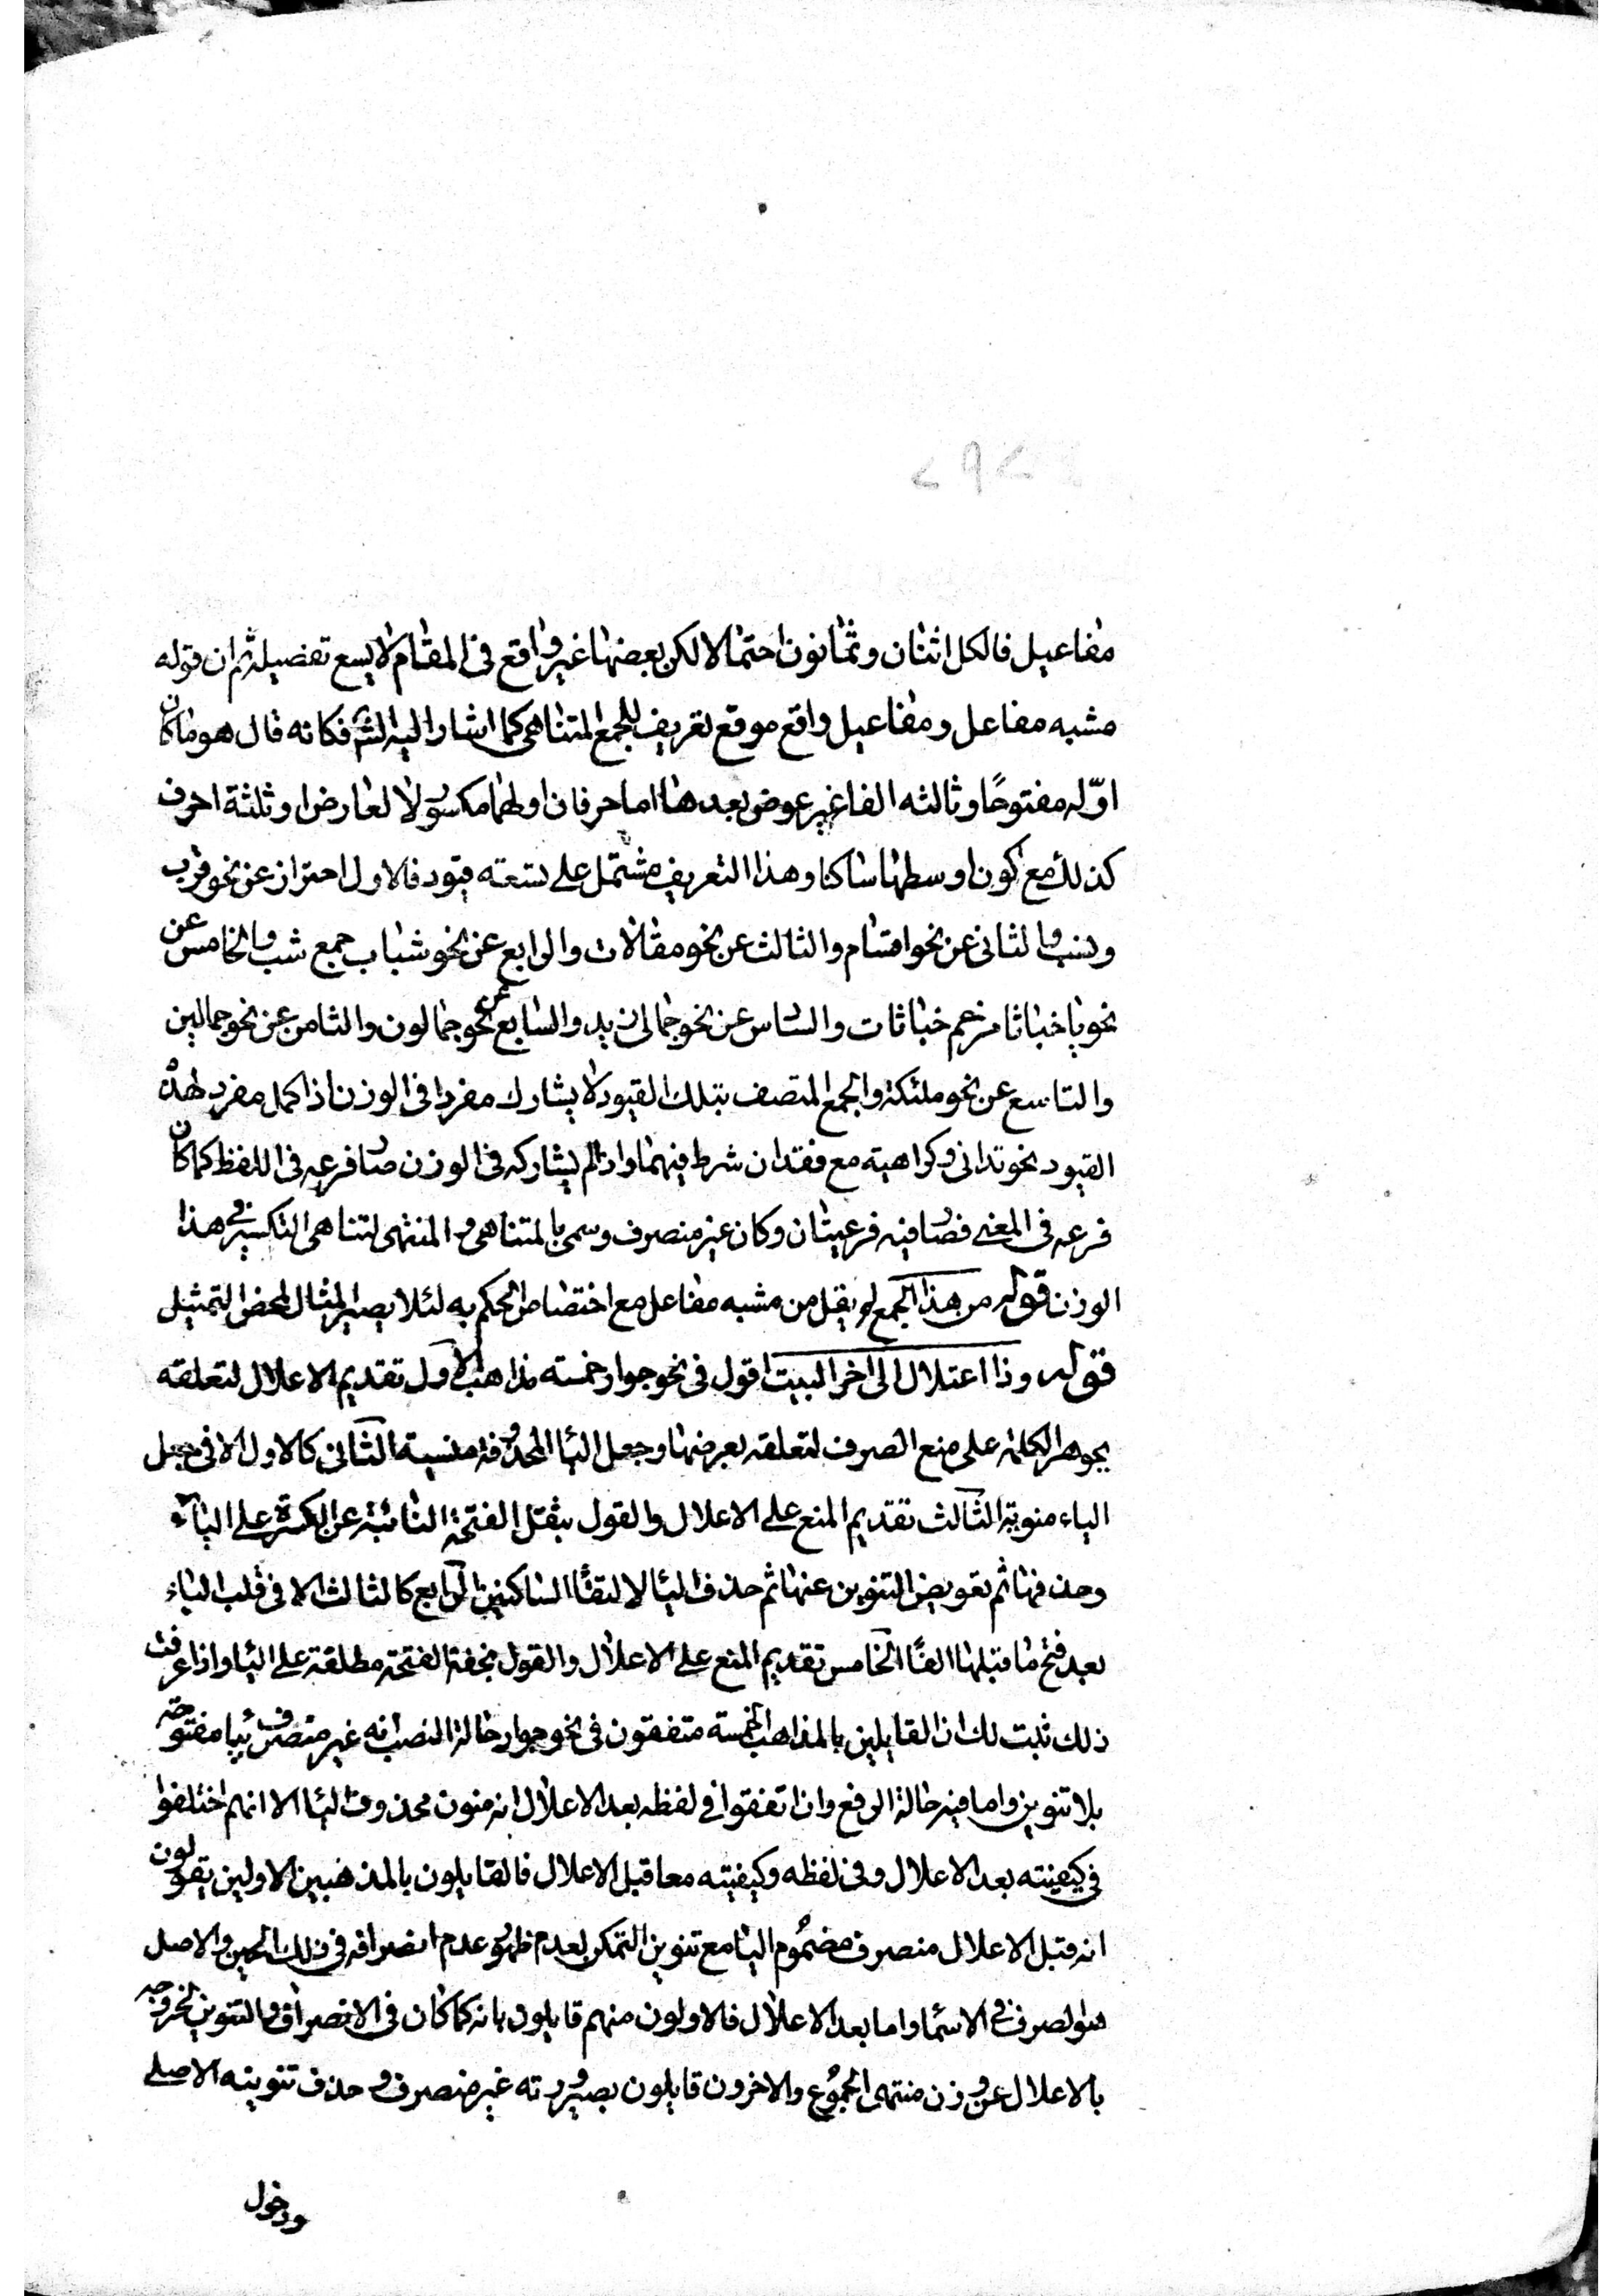 مفاعيل فالكل اثنان وثمانون احتمالا لكن بعضها غير واقع في المقام لا يسع تفضيله ثم ان قوله
مشبه مفاعل ومفاعيل واقع موقع تعريف للجمع المتناهى كما اشار اليه الشم فكانه قال هو ما كان
اوّله مفتوحًا وثالثه الفا غير عوض بعدها اما حرفان اولهما مكسور لا لعارض او ثلثة احرف
كذلك مع كون اوسطها ساكنا وهذا التعريف مشتمل على تسعته قيود فالاول احتراز عن نحو قرب
والثانى عن نحو اقسام والثالث عن نحو مقالات والرابع عن نحو شباب جمع شب والخامس عن
نحو يا خباثا مرخم خباثات والساس عن نحو جمالى زيد والسابع عن نحو جمالون والثامن عن نحو جمالين
والتاسع عن نحو ملئكة والجمع المتصف بتلك القيود لا يشارك مفردا فى الوزن اذ اكمل مفرد لهذه
القيود نحو تدانى وكراهية مع فقدان شرط فيهما واذا لم يشاركه فى الوزن صار فرعه فى اللفظ كما كان
فرعه فى المعنى فصار فيه فرعيتان وكان غير منصرف وسمى بالمتناهى والمنتهى لتناهى التكسير في هذا
الوزن قوله من هذا الجمع لم يقل من مشبه مفاعل مع اختصاص الحكم به لئلا يصير المثال لمحض التمثيل
قوله وذا اعتلال الى اخر البيت اقول فى نحو جوار خمسته مذاهب الاول تقديم الاعلال لتعلقه
بجوهر الكلمة على منع الصرف لتعلقه بعرضها وجعل اليا المحذوفة منسية الثانى كالاول الا فى جعل
الياء منوية الثالث تقديم المنع على الاعلال والقول بثقل الفتحة النائبة عن الكسرة على الياء
وحذفها ثم تعويض التنوين عنها ثم حذف اليا لالتقاء الساكنين الرابع كالثالث الا فى قلب الياء
بعد فتح ما قبلها الفا الخامس تقديم المنع على الاعلال والقول بخفة الفتحة مطلقة على اليا واذا عرفت
ذلك ثبت لك ان القايلين بالمذاهب الخمسته متفقون فى نحو جوار حالة النصب انه غير منصرف بيا مفتوحة
بلا تنوين واما فيه حالة الرفع وان اتفقوا فى لفظه بعد الاعلال انه منون محذوف اليا الا انهم اختلفوا
فى كيفيته بعد الاعلال وفى لفظه وكيفيته معا قبل الاعلال فالقايلون بالمذهبين الاولين يقولون
انه قبل الاعلال منصرف مضموم اليا مع تنوين التمكن لعدم ظهور عدم انصرافه فى ذلك الحين والاصل
هو الصرف في الاسما واما بعد الاعلال فالاولون منهم قايلون بانه كما كان فى الانصراف والتنوين لخروجه
بالاعلال عن وزن منتهى الجموع والاخرون قايلون بصيرورته غير منصرف وحذف تنوينه الاصلى
ودخول